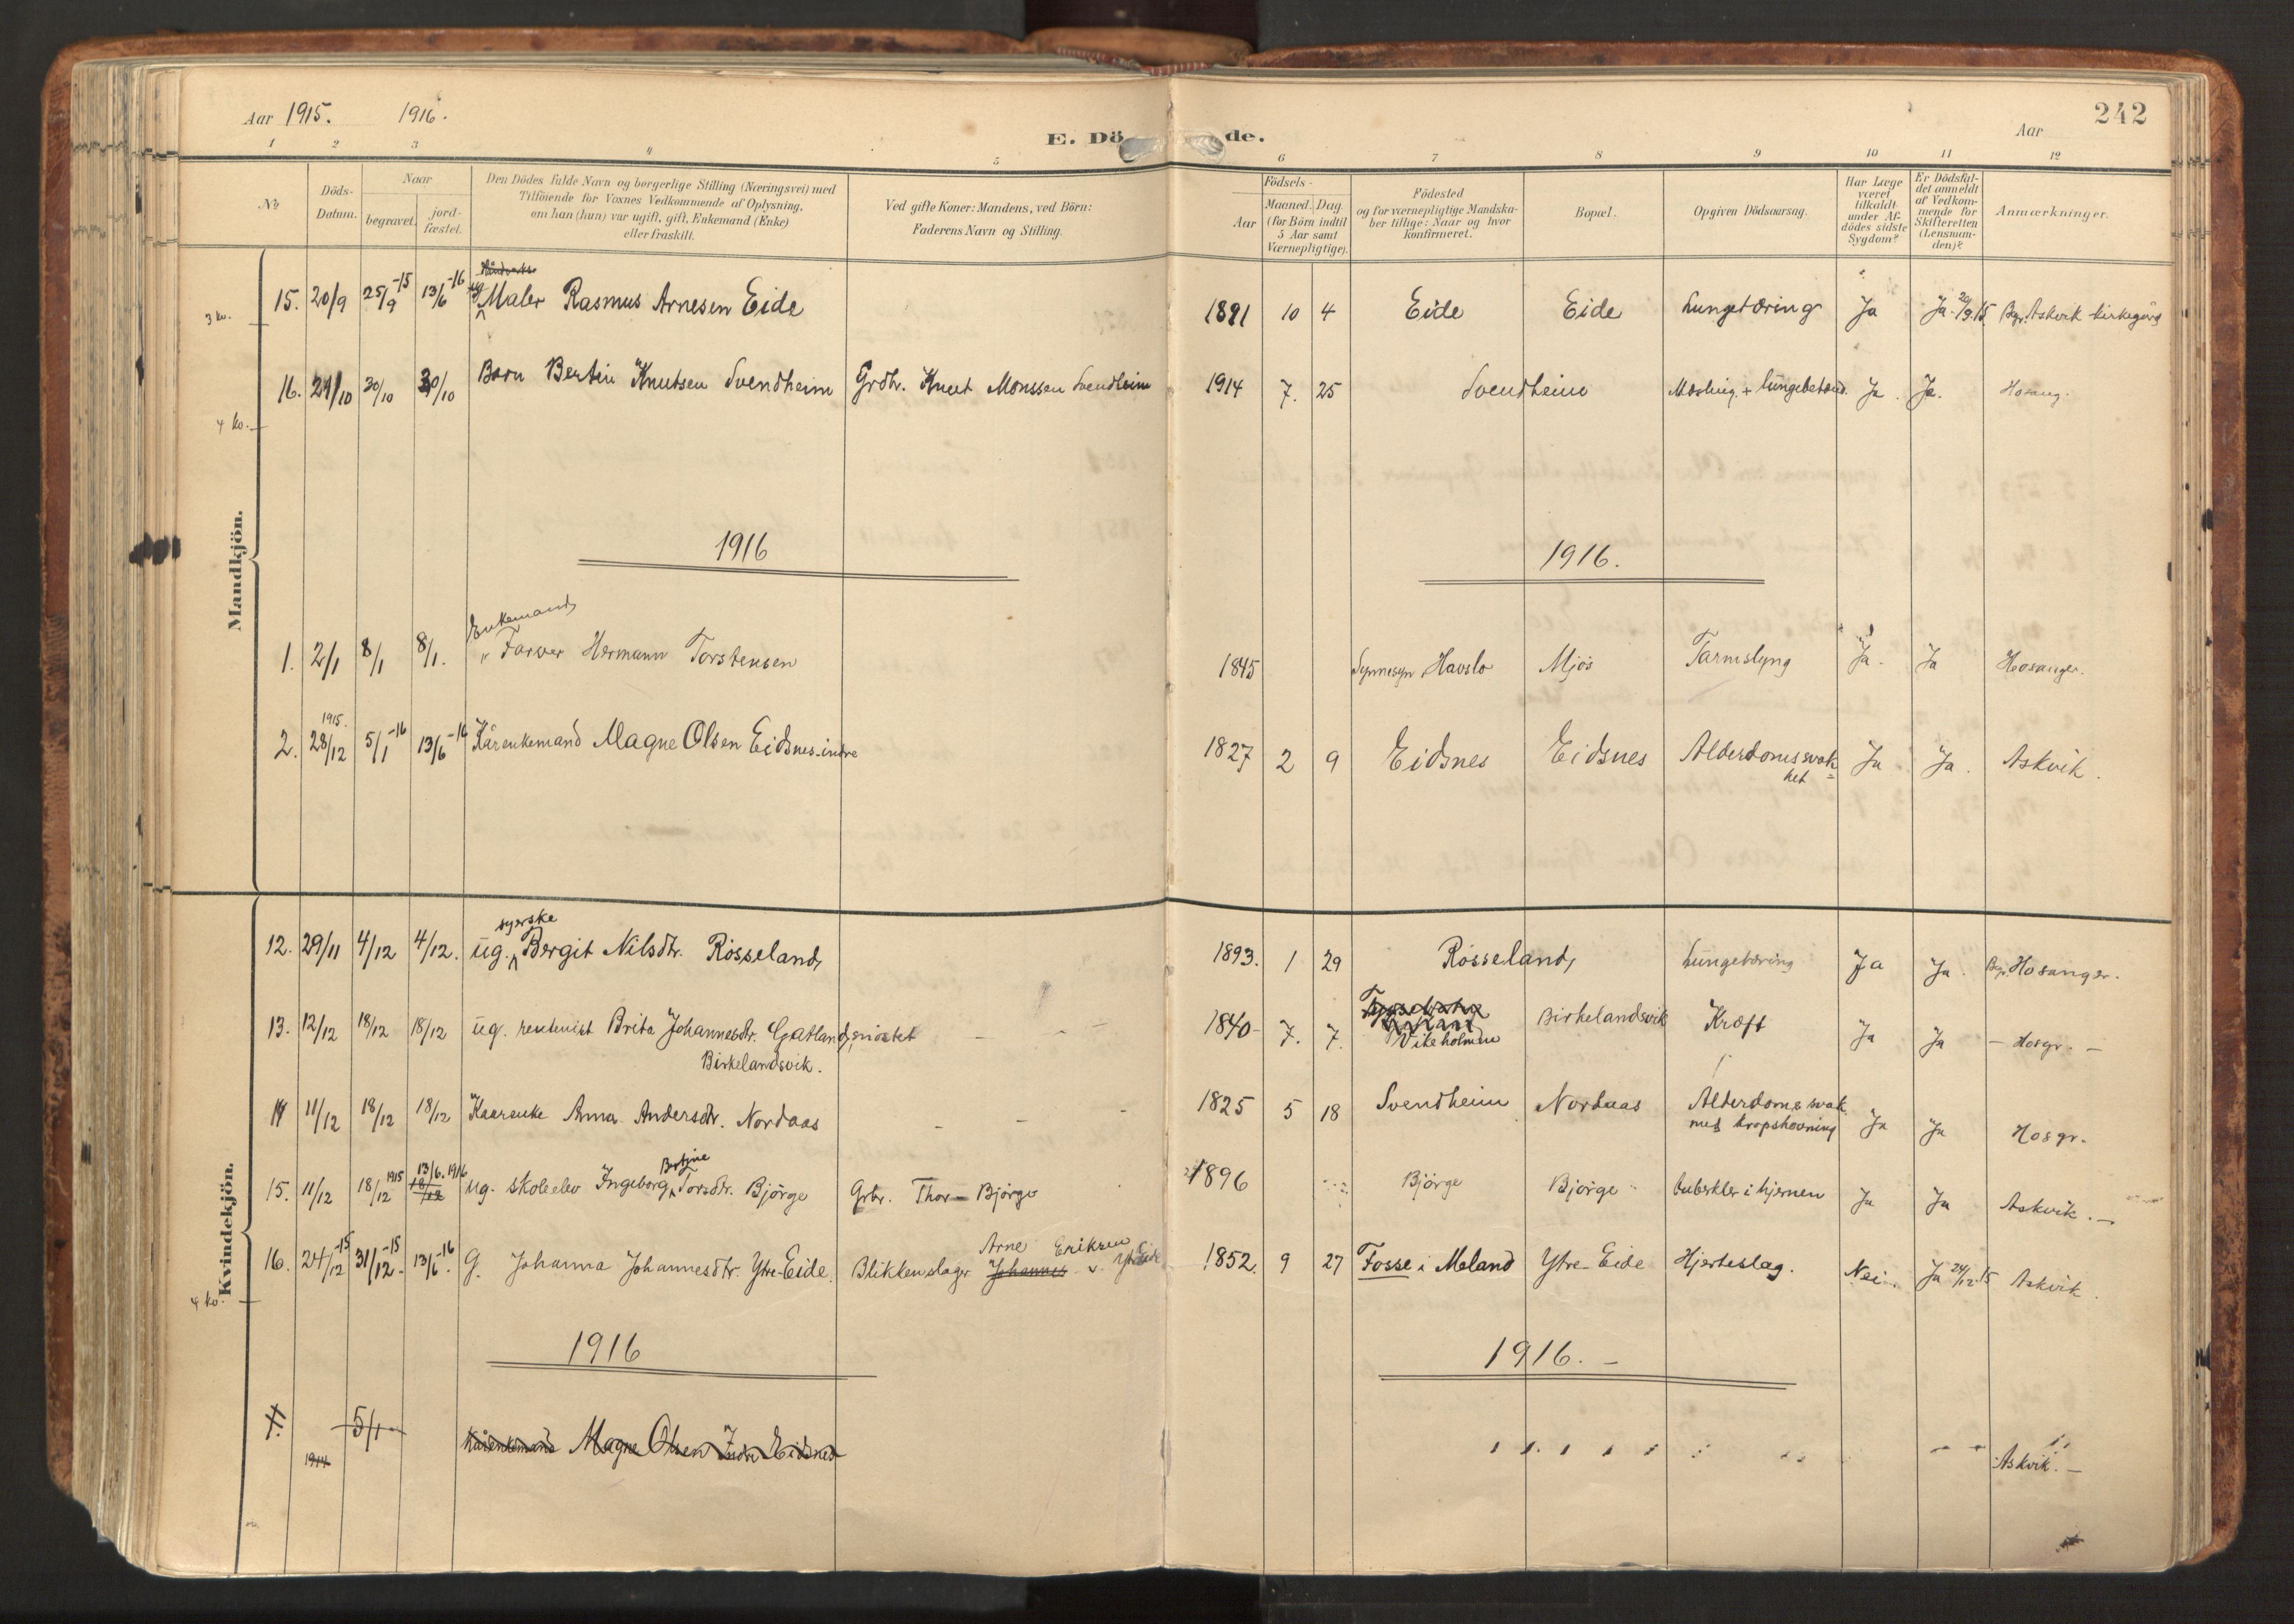 Aar 1915. 1916.
E. Dö de.
Aar
242
1 2 3 4 5 6 7 8 9 10 11 12
No
Döds-
Datum.
Naar
begravet.
jord-
fæstet.
Den Dödes fulde Navn og borgerlige Stilling (Næringsvei) med
Tilföiende for Voxnes Vedkommende af Oplysning,
om han (hun) var ugift, gift, Enkemand (Enke)
eller fraskilt.
Ved gifte Koner: Mandens, ved Börn:
Faderens Navn og Stilling.
Födsels-
Aar
Maaned. Dag.
(for Börn indtil
5 Aar samt
Værnepligtige).
Födested
og for værnepligtige Mandska-
ber tillige: Naar og hvor
konfirmeret.
Bopæl.
Opgiven Dödsaarsag.
Har Læge
været
tilkaldt
under Af-
dödes sidste
Sygdom?
Er Dödsfal-
det anmeldt
af Vedkom-
mende for
Skifteretten
(Lensman-
den)?
Anmærkninger.
Mandkjön.
3 ko.
15. 20/9 25/9 -15 13/6 -16 Maler Rasmus Arnesen Eide 1891 10 4 Eide Eide Lungetæring Ja Ja 20/9.15 Bgr. Askvik kirkegård
16. 21/10 30/10 30/10 Barn Bertin Knutsen Svendheim Grdbr. Knut Monssen Svendheim 1914 7. 25 Svendheim Mæsling. + lungebetænd. Ja. Ja. Hosang.
4 ko.
1916 1916.
Enkemand
1. 2/1 8/1 8/1. " Farver Hermann Torstensen 1845 Havslo Mjös Tarmslyng Ja. Ja Hosanger.
1915.
2. 28/12 5/1 -16 13/6 -16 Kårenkemand Magne Olsen Eidsnes indre 1827 2 9 Eidsnes Eidsnes Alderdomssvak- Ja Ja. Askvik.
het
Kvindekjön.
syerske
12. 29/11 4/12 4/12. ug. Bergit Nilsdtr. Rosseland, 1893. 1 29 Rosseland, Lungetæring Ja Ja. Bgr. Hosanger.
13. 12/12 18/12 18/12 ug. rentenist Brita Johannesdtr. Gatland, 1840 7. 7. Birkelandsvik Kræft Ja Ja – Hosgr. –
Vikeholmen
Birkelandsvik.
14 11/12 18/12 18/12 Kaarenke Anna Andersdtr. Nordaas - - 1825 5 18 Svendheim Nordaas Alderdomssvak Ja Ja Hosgr.
med kropshovning
Bertine
15. 11/12 18/12 1915 13/6.1916 18/12 ug. skoleelev Ingeborg Torsdtr. Bjørge Grbr. Thor – Bjørge 1896 Bjørge Bjørge tuberkler i hjernen Ja Ja Askvik. –
Arne Eriksen
16. 24/12 -15 31/12 -15 13/6 -16 G. Johanna Johannesdtr. Ytre-Eide. Blikkenslager Johannes Ytre Eide 1852. 9 27 Fosse i Meland Ytre-Eide Hjerteslag. Nei. Ja 24/12.15 Askvik.
4 ko.
1916 1916. –
1. 5/1 Kårenkemand Magne Olsen Indre Eidsnes
1914
Askvik. –